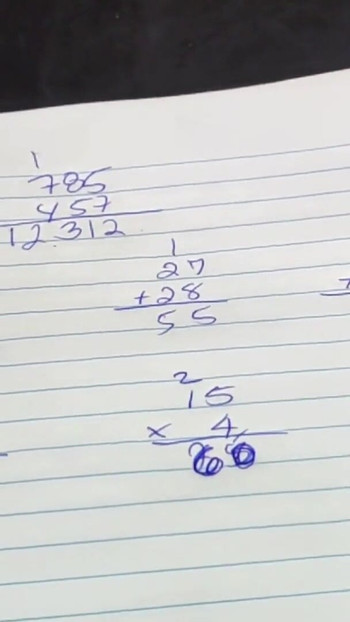 1
785
457
12.312
1
27
+28
55
2
15
× 4
60